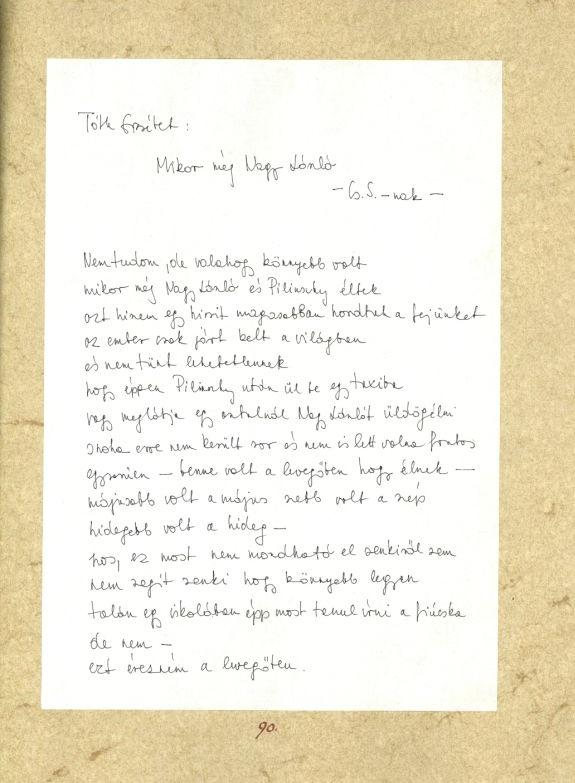 Tóth Erzsébet:
Mikor még Nagy László
– Cs. S. – nak –
Nem tudom, de valahogy könnyebb volt
mikor még Nagy László és Pilinszky éltek
azt hiszem egy kicsit magasabban hordtuk a fejünket
az ember csak járt kelt a világban
és nem tünt lehetetlennek
hogy éppen Pilinszky után ül be egy taxiba
vagy meglátja egy asztalnál Nagy Lászlót üldögélni
soha erre nem került sor és nem is lett volna fontos
egyszerűen – benne volt a levegőben hogy élnek –
májusabb volt a május szebb volt a szép
hidegebb volt a hideg –
nos, ez most nem mondható el senkiről sem
nem segít senki hogy könnyebb legyen
talán egy iskolában épp most tanul írni a fiúcska
de nem –
ezt érezném a levegőben.
90.